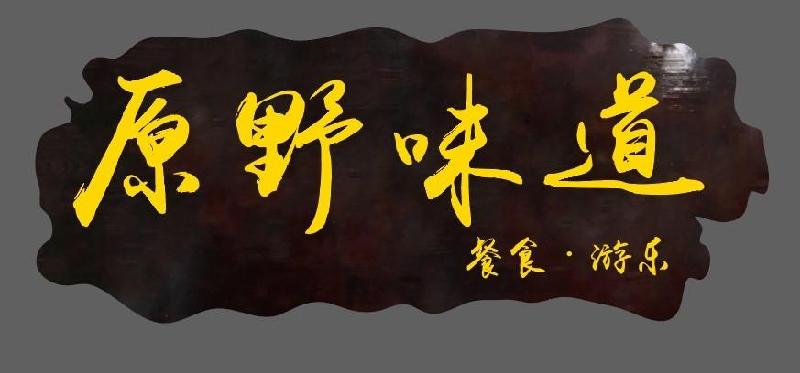 原野味道
餐食·游乐